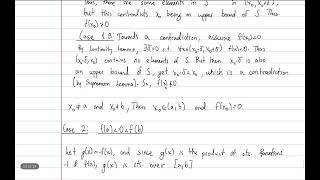 Thus, there are some elements in S in (x₀, x₀+δ),
but this contradicts x₀ being an upper bound of S. Thus
f(x₀) ≯ 0
Case 1.B: Towards a contradiction, assume f(x₀)>0.
By Continuity Lemma, ∃δ>0 s.t. ∀x∈(x₀-δ, x₀+δ) f(x)>0. Thus
(x₀-δ, x₀) contains no elements of S. But then x₀-δ is also
an upper bound of S, yet x₀-δ < x₀, which is a contradiction
(by Supremum Lemma). So, f(x₀)
x₀≠a and x₀≠b, Thus x₀∈(a,b) and f(x₀)=0.
Case 2: f(a)>0>f(b)
Let g(x)=-f(x), and since g(x) is the product of cts functions
-1 & f(x), g(x) is cts over [a,b].